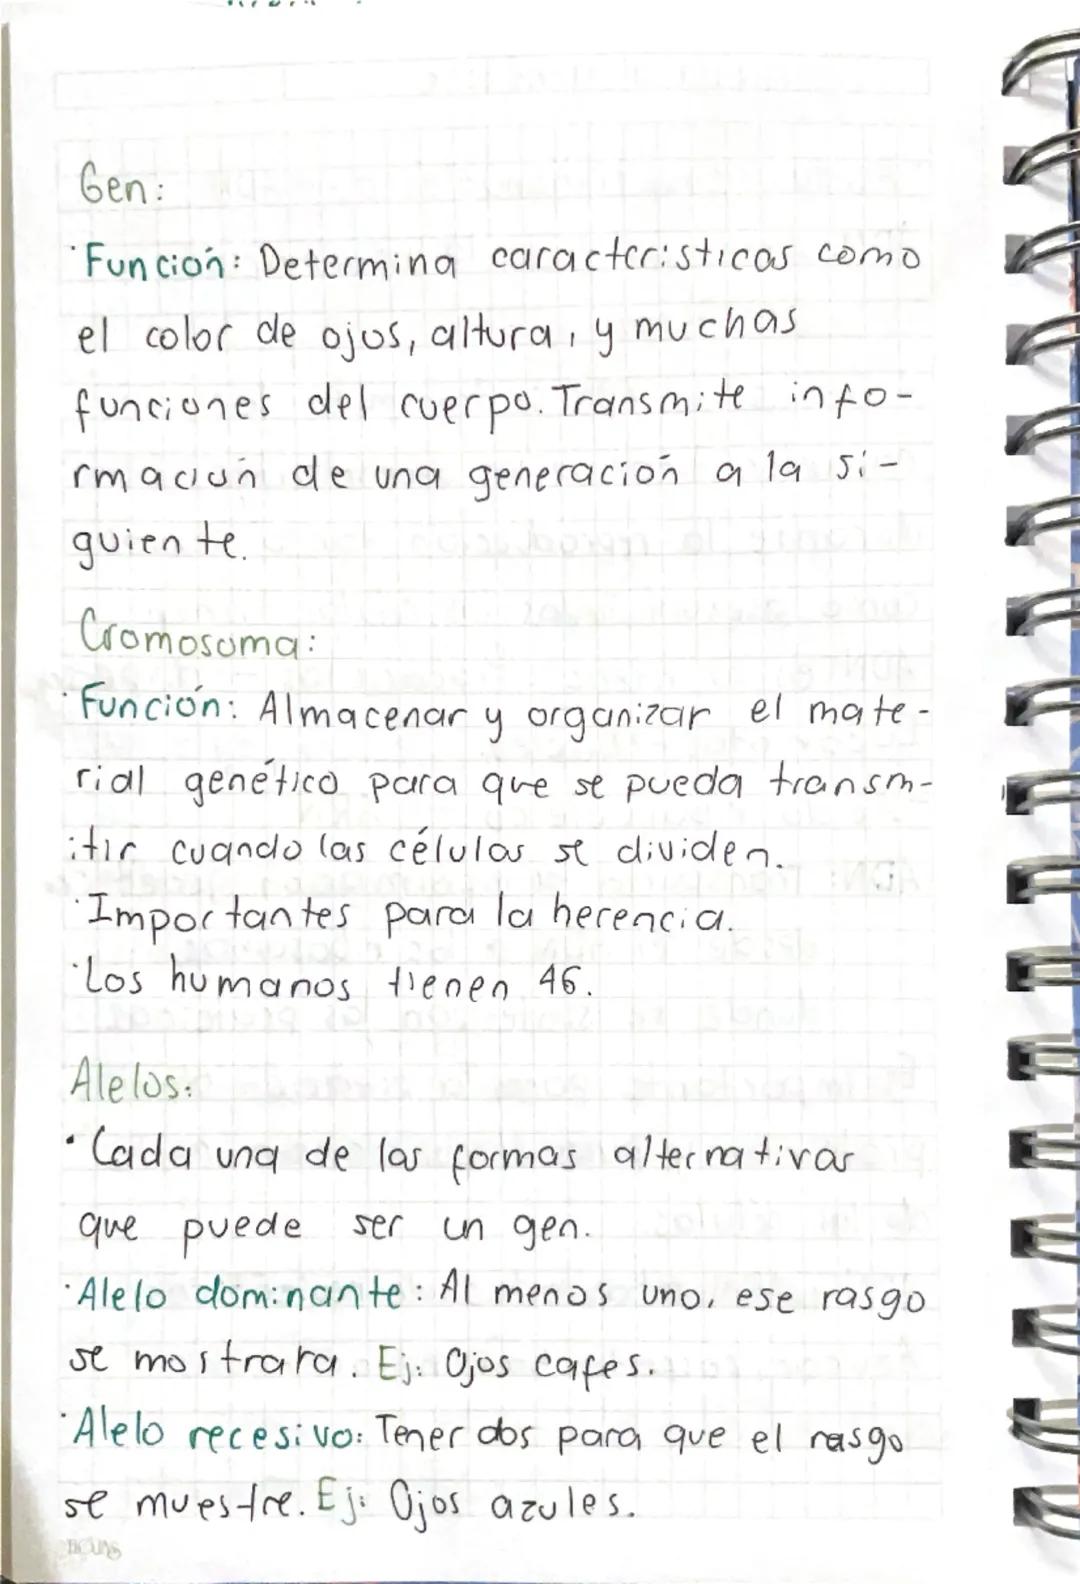 Gen:
·Función: Determina caracteristicas como
el color de ojos, altura, y muchas
funciones del cuerpo. Transmite info-
rmación de una generación a la si-
guiente.
Cromosoma:
·Función: Almacenar y organizar el mate-
rial genético para que se pueda transm-
itir cuando las células se dividen.
·Importantes para la herencia.
·Los humanos tienen 46.
Alelos:
·Cada una de las formas alternativas
que puede ser un gen.
·Alelo dominante: Al menos uno, ese rasgo
se mostrara. Ej: Ojos cafes.
·Alelo recesivo: Tener dos para que el rasgo
se muestre. Ej: Ojos azules.